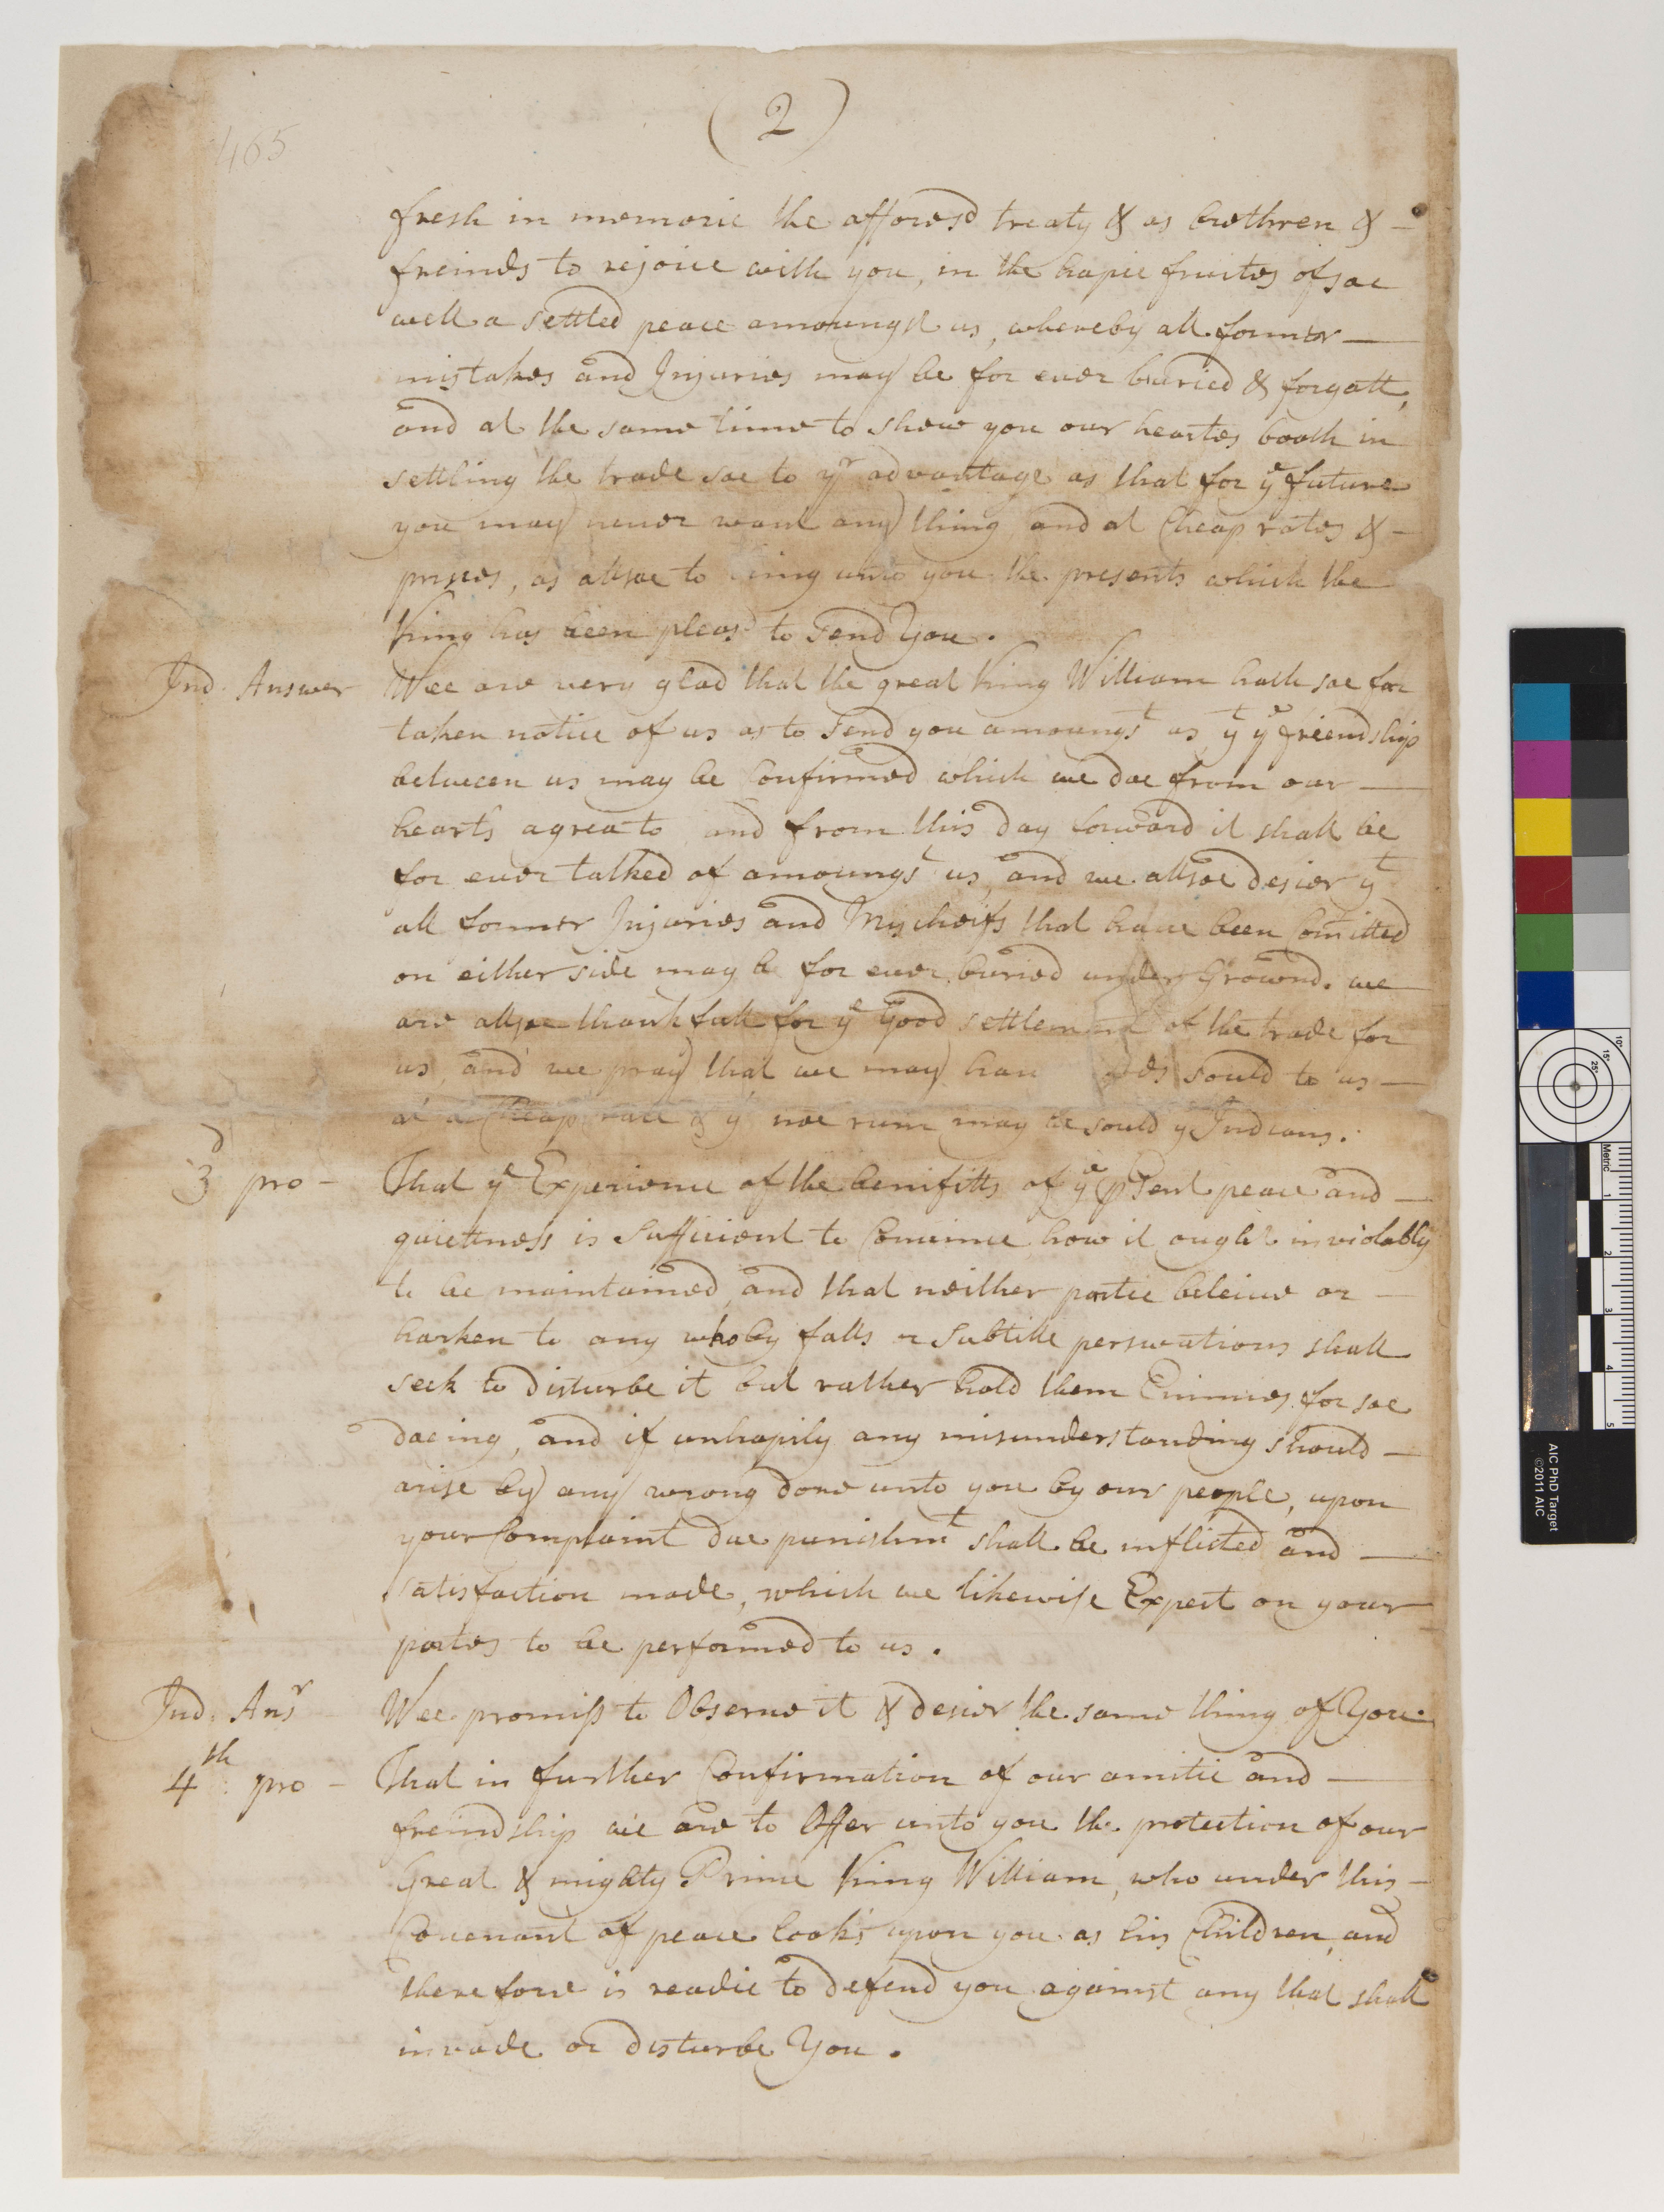 (2)
465
fresh in memorie the afforesd treaty & as brothren &
freinds to rejoice with you, in the hapie fruites of soe
well a settled peace amoungst us, whereby all former
mistakes and Injuries may be for ever buried & forgott,
and at the same time to shew you our heartes booth in
settling the trade soe to yr advantage as that for ye future
you may never want any thing and at Cheap rates &
prises, as allsoe to unto you the presents which the
King has been pleasd to send You.
Ind. Answer Wee are very glad that the great King William hath soe far
taken notice of us as to send you amoungst us yt ye freendship
between us may be Confirmed which we doe from our
hearts agree to and from this day forward it shall be
for ever talked of amoungst us, and we allsoe desier yt
all former Injuries and Mischeifs that have been Comitted
on either side may be for ever buried under Ground. we
are allsoe thankfull for ye Good settlement of the trade for
us, and we pray that we may have sould to us
at a Cheap rate & yt noe rum may be sould ye Indians.
3d pro - That ye Experience of the benifitts of ye psent peace and
quiettness is Sufficient to Convince how it ought inviolably
to be maintained, and that neither partie beleive or
harken to any who by falls or Subtille perswations shall
seek to disturbe it but rather hold them Enimies for soe
doeing, and if unhapily any misunderstanding should
arise by any wrong done unto you by our people, upon
your Complaint due punishmt shall be inflicted and
satisfaction made, which we likewise Expect on your
partes to be performed to us.
Ind. Ansr Wee promiss to Observe it & desier the same thing of You.
4th pro - That in further Confirmation of our amitie and
freindship we are to Offer unto you the protection of our
Great & mighty Prince King William, who under this
Covenant of peace looks upon you as his Children, and
therefore is readie to defend you against any that shall
invade or disturbe You.
AIC PhD Target
©2011 AIC
Metric
1
2
3
4
5
10°
15°
25°